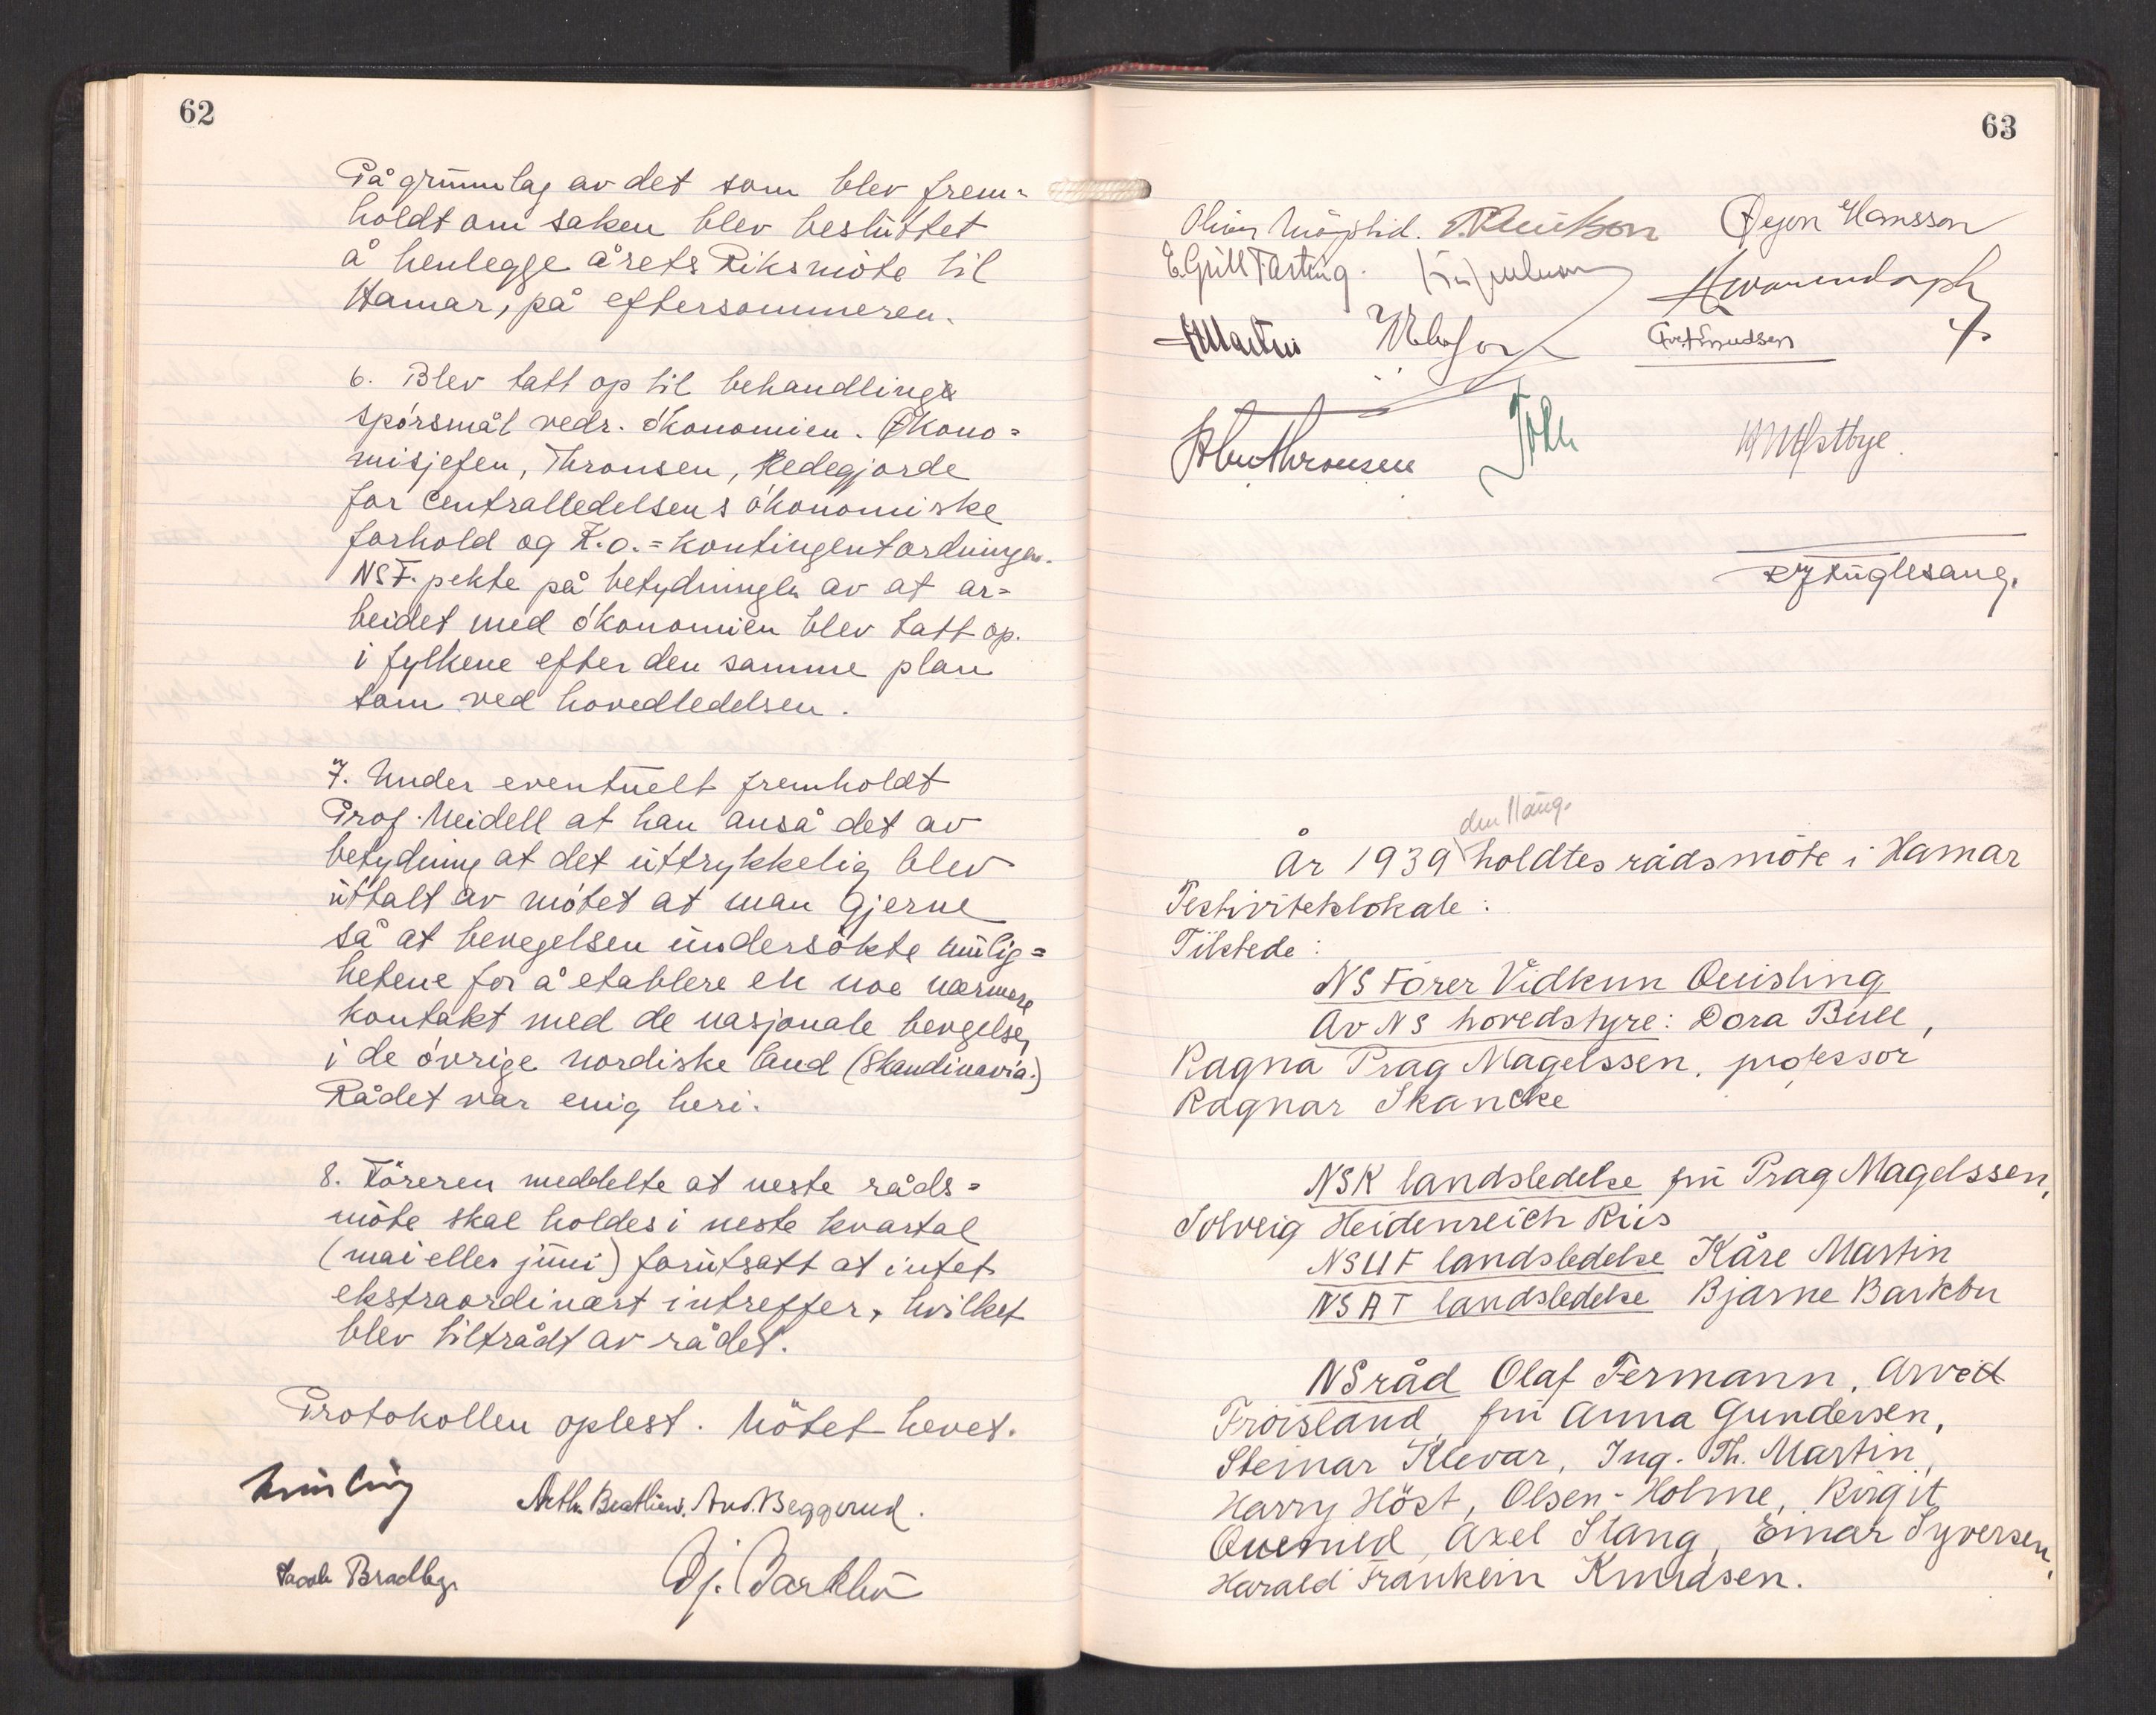 62
På grunnlag av det som blev frem=
holdt om saken blev besluttet
å henlegge årets Riksmöte til
Hamar, på eftersommeren.
6. Blev tatt op til behandling
spörsmål vedr. ökonomien. Økono=
misjefen, Thronsen, Redegjorde
for centralledelsens ökonomiske
forhold og K.o.=kontingentordningen.
NSF. pekte på betydningen av at ar=
beidet med ökonomien blev tatt op.
i fylkene efter den samme plan
som ved hovedledelsen.
7. Under eventuelt fremholdt
Prof. Meidell at han anså det av
betydning at det uttrykkelig blev
uttalt av mötet at man gjerne
så at bevegelsen undersökte mulig=
hetene for å etablere en noe nærmere
kontakt med de nasjonale bevgelser
i de övrige nordiske land (Skandinavia.)
Rådet var enig heri.
8. Föreren meddelte at neste råds=
möte skal holdes i neste kvartal
(mai eller juni) forutsatt at intet
ekstraordinært intreffer, hvilket
blev tiltrådt av rådet.
Protokollen oplest. Mötet hevet.
Quisling And. Beggerud.
Jacob Bj. Barkbu
63
Oliver Ørjan Hansson
E. Grill Fasting.
Martin
Thronsen H Østbye.
R J Fuglesang.
den 11 aug.
År 1939 holdtes rådsmöte i Hamar
Festivitetslokale:
Tilstede:
NS Förer Vidkun Quisling
Av NS hovedstyre: Dora Bull,
Ragna Prag Magelssen, professor
Ragnar Skancke
NSK landsledelse fru Prag Magelssen,
Solveig Heidenreich Riis
NSUF landsledelse Kåre Martin
NSAT landsledelse Bjarne Barkbu
NSråd Olaf Fermann, Arvid
Fröisland, fru Anna Gundersen,
Steinar Klevar, Ing. Th. Martin,
Harry Höst, Olsen-Holme, Birgit
Quesnild, Axel Stang, Einar Syversen,
Harald Franklin Knudsen.